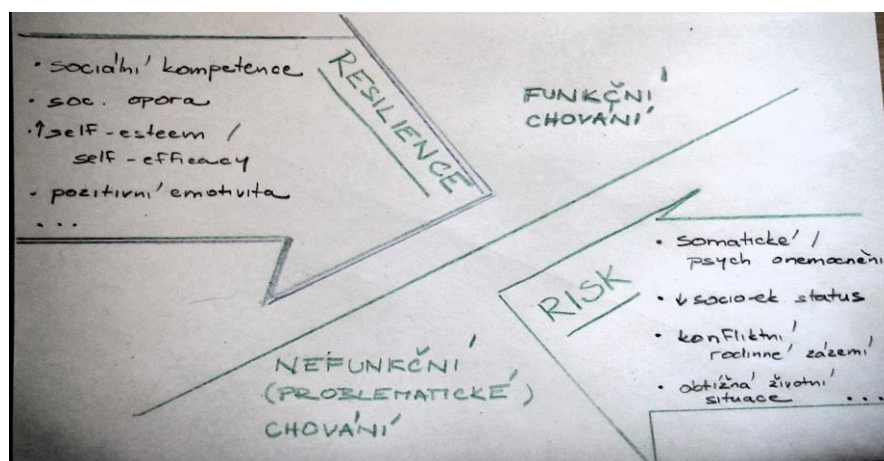 • sociální kompetence
• soc. opora
• ↑self-esteem /
self-efficacy
• pozitivní emotivita
...
RESILIENCE
FUNKČNÍ
CHOVÁNÍ
RISK
• somatické /
psych onemocnění
• ↓ socio-ek status
• konfliktní
rodinné zázemí
• obtížná životní
situace ...
NEFUNKČNÍ
(PROBLEMATICKÉ)
CHOVÁNÍ